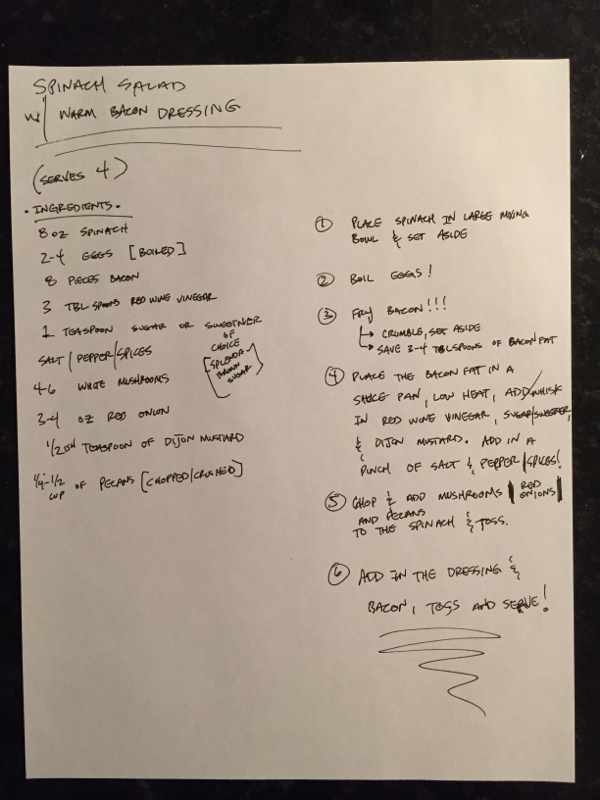 SPINACH SALAD
W/ WARM BACON DRESSING
(SERVES 4)
• INGREDIENTS •
8 OZ SPINACH
2-4 EGGS [BOILED]
8 PIECES BACON
3 TBLSPOONS RED WINE VINEGAR
1 TEASPOON SUGAR OR SWEETNER OF CHOICE
[SPLENDA BROWN SUGAR]
SALT/PEPPER/SPICES
4-6 WHITE MUSHROOMS
3-4 OZ RED ONION
1/2 TEASPOON OF DIJON MUSTARD
1/4-1/2 CUP OF PECANS [CHOPPED/CRUSHED]
① PLACE SPINACH IN LARGE MIXING
BOWL & SET ASIDE
② BOIL EGGS!
③ FRY BACON!!!
↳ CRUMBLE, SET ASIDE
↳ SAVE 3-4 TBLSPOONS OF BACON FAT
④ PLACE THE BACON FAT IN A
SAUCE PAN, LOW HEAT, ADD/WHISK
IN RED WINE VINEGAR, SUGAR/SWEETNER,
& DIJON MUSTARD. ADD IN A
PINCH OF SALT & PEPPER/SPICES!
⑤ CHOP & ADD MUSHROOMS | RED ONIONS |
AND PECANS
TO THE SPINACH & TOSS.
⑥ ADD IN THE DRESSING &
BACON, TOSS AND SERVE!